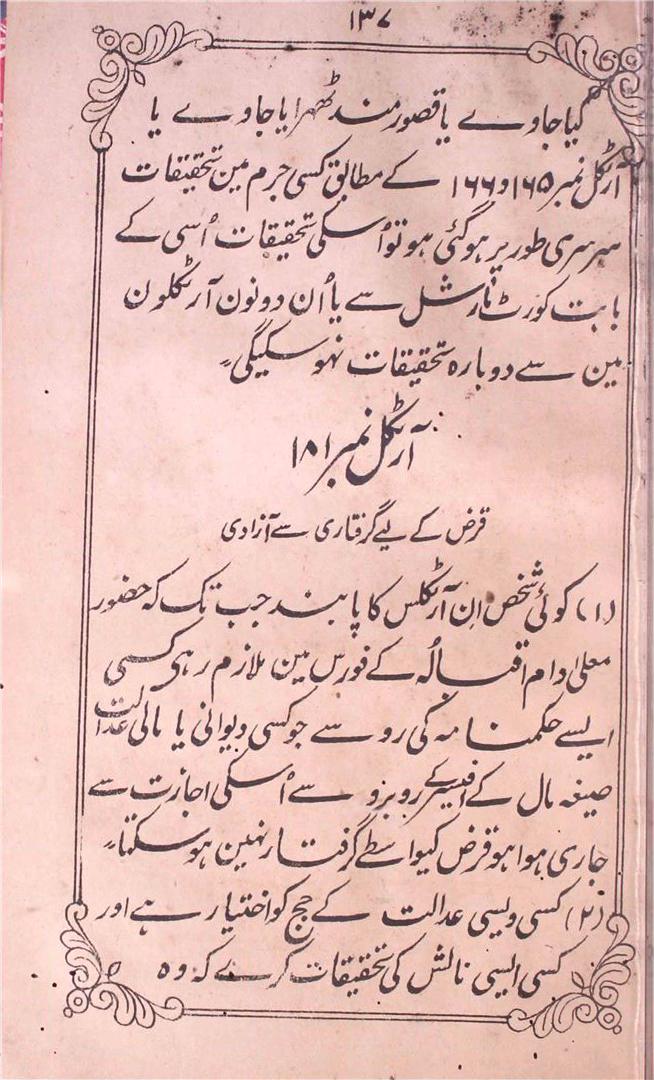 ۱۳۷
کیا جاوے یا قصورمند ٹھہرایا جاوے یا
آرٹکل نمبر ۱۶۵ و ۱۶۶ کے مطابق کسی جرم مین تحقیقات
سرسری طور پر ہو گئی ہو تو اُسکی تحقیقات اُسی کے
بابت کورٹ مارشل سے یا اُن دونون آرٹکلون
مین سے دوبارہ تحقیقات نہو سکیگی۔
آرٹکل نمبر ۱۸۱
قرض کے لیے گرفتاری سے آزادی
(۱) کوئی شخص اِن آرٹکلس کا پابند جب تک کہ حضور
معلیٰ دام اقبالُہ کے فورس مین ملازم رہی کسی
ایسے حکمنامہ کی رو سے جو کسی دیوانی یا مالی عدالت
صیغہ مال کے افیسر کے روبرو سے اُسکی اجازت سے
جاری ہوا ہو قرض کیواسطے گرفتار نہین ہو سکتا۔
(۲) کسی ویسی عدالت کے جج کو اختیار ہے اور
کسی ایسی نالش کی تحقیقات کرے کہ وہ